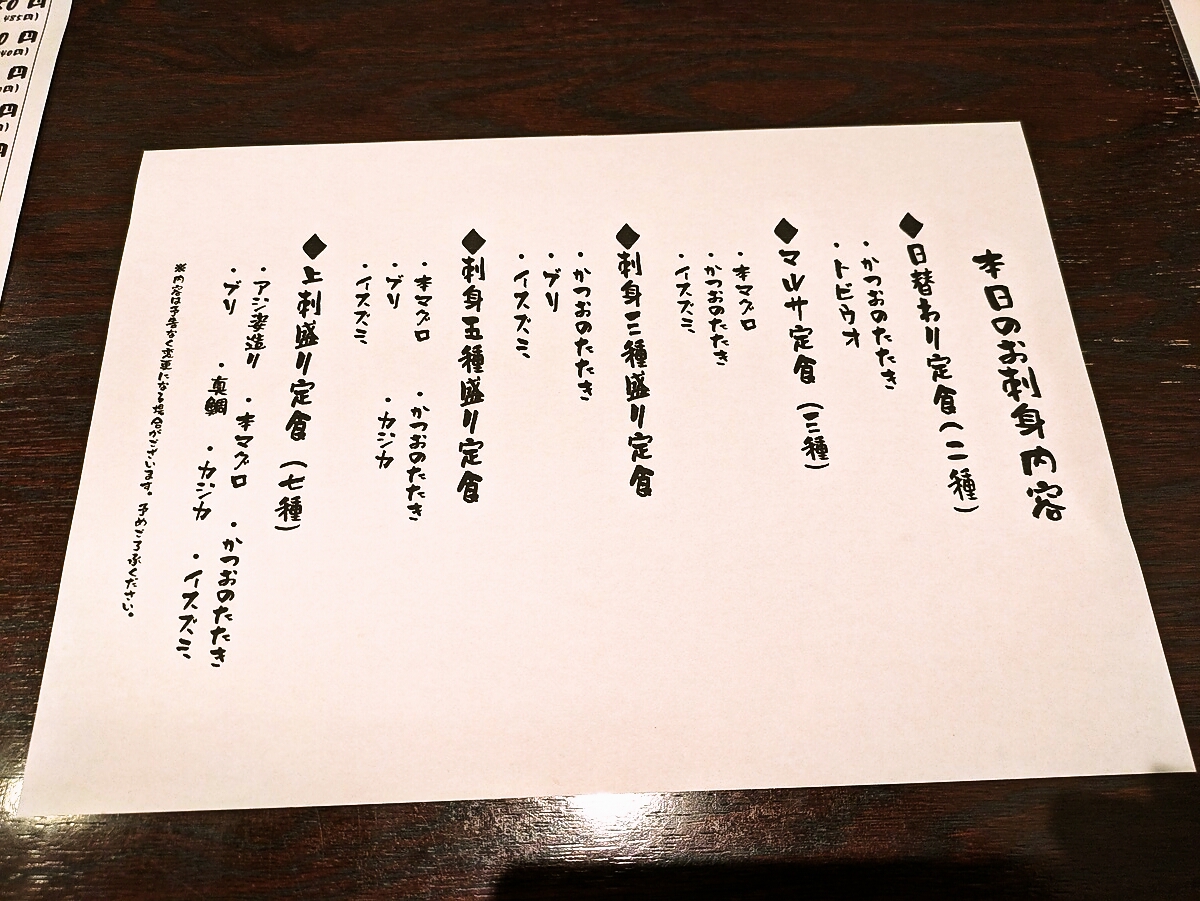 本日のお刺身内容
◆日替わり定食（二種）
・かつおのたたき
・トビウオ
◆マルサ定食（三種）
・本マグロ
・かつおのたたき
・イスズミ
◆刺身三種盛り定食
・かつおのたたき
・ブリ
・イスズミ
◆刺身五種盛り定食
・本マグロ ・かつおのたたき
・ブリ ・カジカ
・イスズミ
◆上刺盛り定食（七種）
・アジ姿造り ・本マグロ ・かつおのたたき
・ブリ ・真鯛 ・カジカ ・イスズミ
※内容は予告なく変更になる場合がございます。予めご了承ください。
円
485円)
円
円
円
円